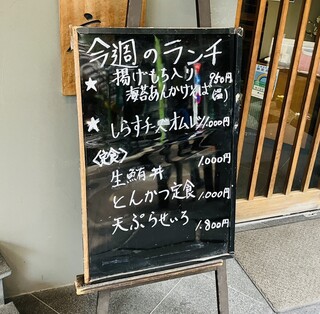 今週のランチ
★ 揚げもち入り 950円
海苔あんかけそば (温)
★ しらすチーズオムレツ 1.000円
<定食>
生鮪丼 1.000円
とんかつ定食 1.000円
天ぷらせいろ 1.800円